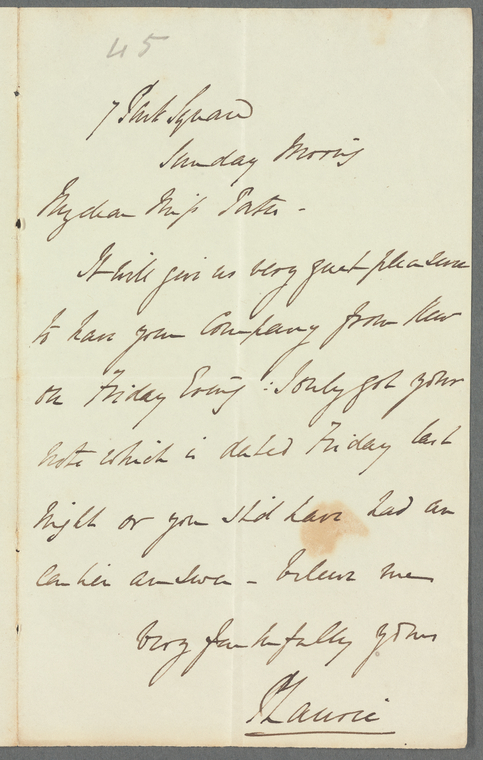 45
7 Park Square
Sunday Morng
My dear Miss
It will give us very great pleasure
to have your Company from Kew
on Friday Eveng : I only got your
note which is dated Friday last
night or you shd have had an
earlier answer – believe me
very faithfully yours
P Laurie